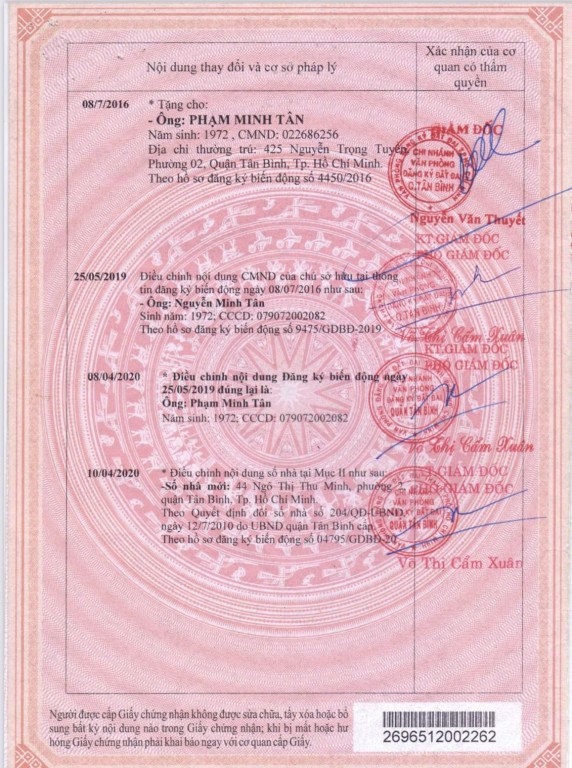 Nội dung thay đổi và cơ sở pháp lý
Xác nhận của cơ
quan có thẩm
quyền
08/7/2016
* Tặng cho:
- Ông: PHẠM MINH TÂN
Năm sinh: 1972 , CMND: 022686256
Địa chỉ thường trú: 425 Nguyễn Trọng Tuyển,
Phường 02, Quận Tân Bình, Tp. Hồ Chí Minh.
Theo hồ sơ đăng ký biến động số 4450/2016
GIÁM ĐỐC
CHI NHÁNH
VĂN PHÒNG
ĐĂNG KÝ ĐẤT ĐAI
Q.TÂN BÌNH
Nguyễn Văn Thuyết
25/05/2019
Điều chỉnh nội dung CMND của chủ sở hữu tại thông
tin đăng ký biến động ngày 08/07/2016 như sau:
- Ông: Nguyễn Minh Tân
Sinh năm: 1972; CCCD: 079072002082
Theo hồ sơ đăng ký biến động số 9475/GDBĐ-2019
KT.GIÁM ĐỐC
PHÓ GIÁM ĐỐC
Q.TÂN BÌNH
Võ Thị Cẩm Xuân
08/04/2020
* Điều chỉnh nội dung Đăng ký biến động ngày
25/05/2019 đúng lại là:
Ông: Phạm Minh Tân
Năm sinh: 1972; CCCD: 079072002082
KT.GIÁM ĐỐC
PHÓ GIÁM ĐỐC
CHI NHÁNH
VĂN PHÒNG
ĐĂNG KÝ ĐẤT ĐAI
QUẬN TÂN BÌNH
Võ Thị Cẩm Xuân
10/04/2020
* Điều chỉnh nội dung số nhà tại Mục II như sau:
-Số nhà mới: 44 Ngô Thị Thu Minh, phường 2,
quận Tân Bình, Tp. Hồ Chí Minh.
Theo Quyết định đổi số nhà số 204/QĐ-UBND
ngày 12/7/2010 do UBND quận Tân Bình cấp.
Theo hồ sơ đăng ký biến động số 04795/GDBĐ-20
KT.GIÁM ĐỐC
PHÓ GIÁM ĐỐC
CHI NHÁNH
VĂN PHÒNG
ĐĂNG KÝ ĐẤT ĐAI
QUẬN TÂN BÌNH
Võ Thị Cẩm Xuân
Người được cấp Giấy chứng nhận không được sửa chữa, tẩy xóa hoặc bổ
sung bất kỳ nội dung nào trong Giấy chứng nhận; khi bị mất hoặc hư
hỏng Giấy chứng nhận phải khai báo ngay với cơ quan cấp Giấy.
2696512002262